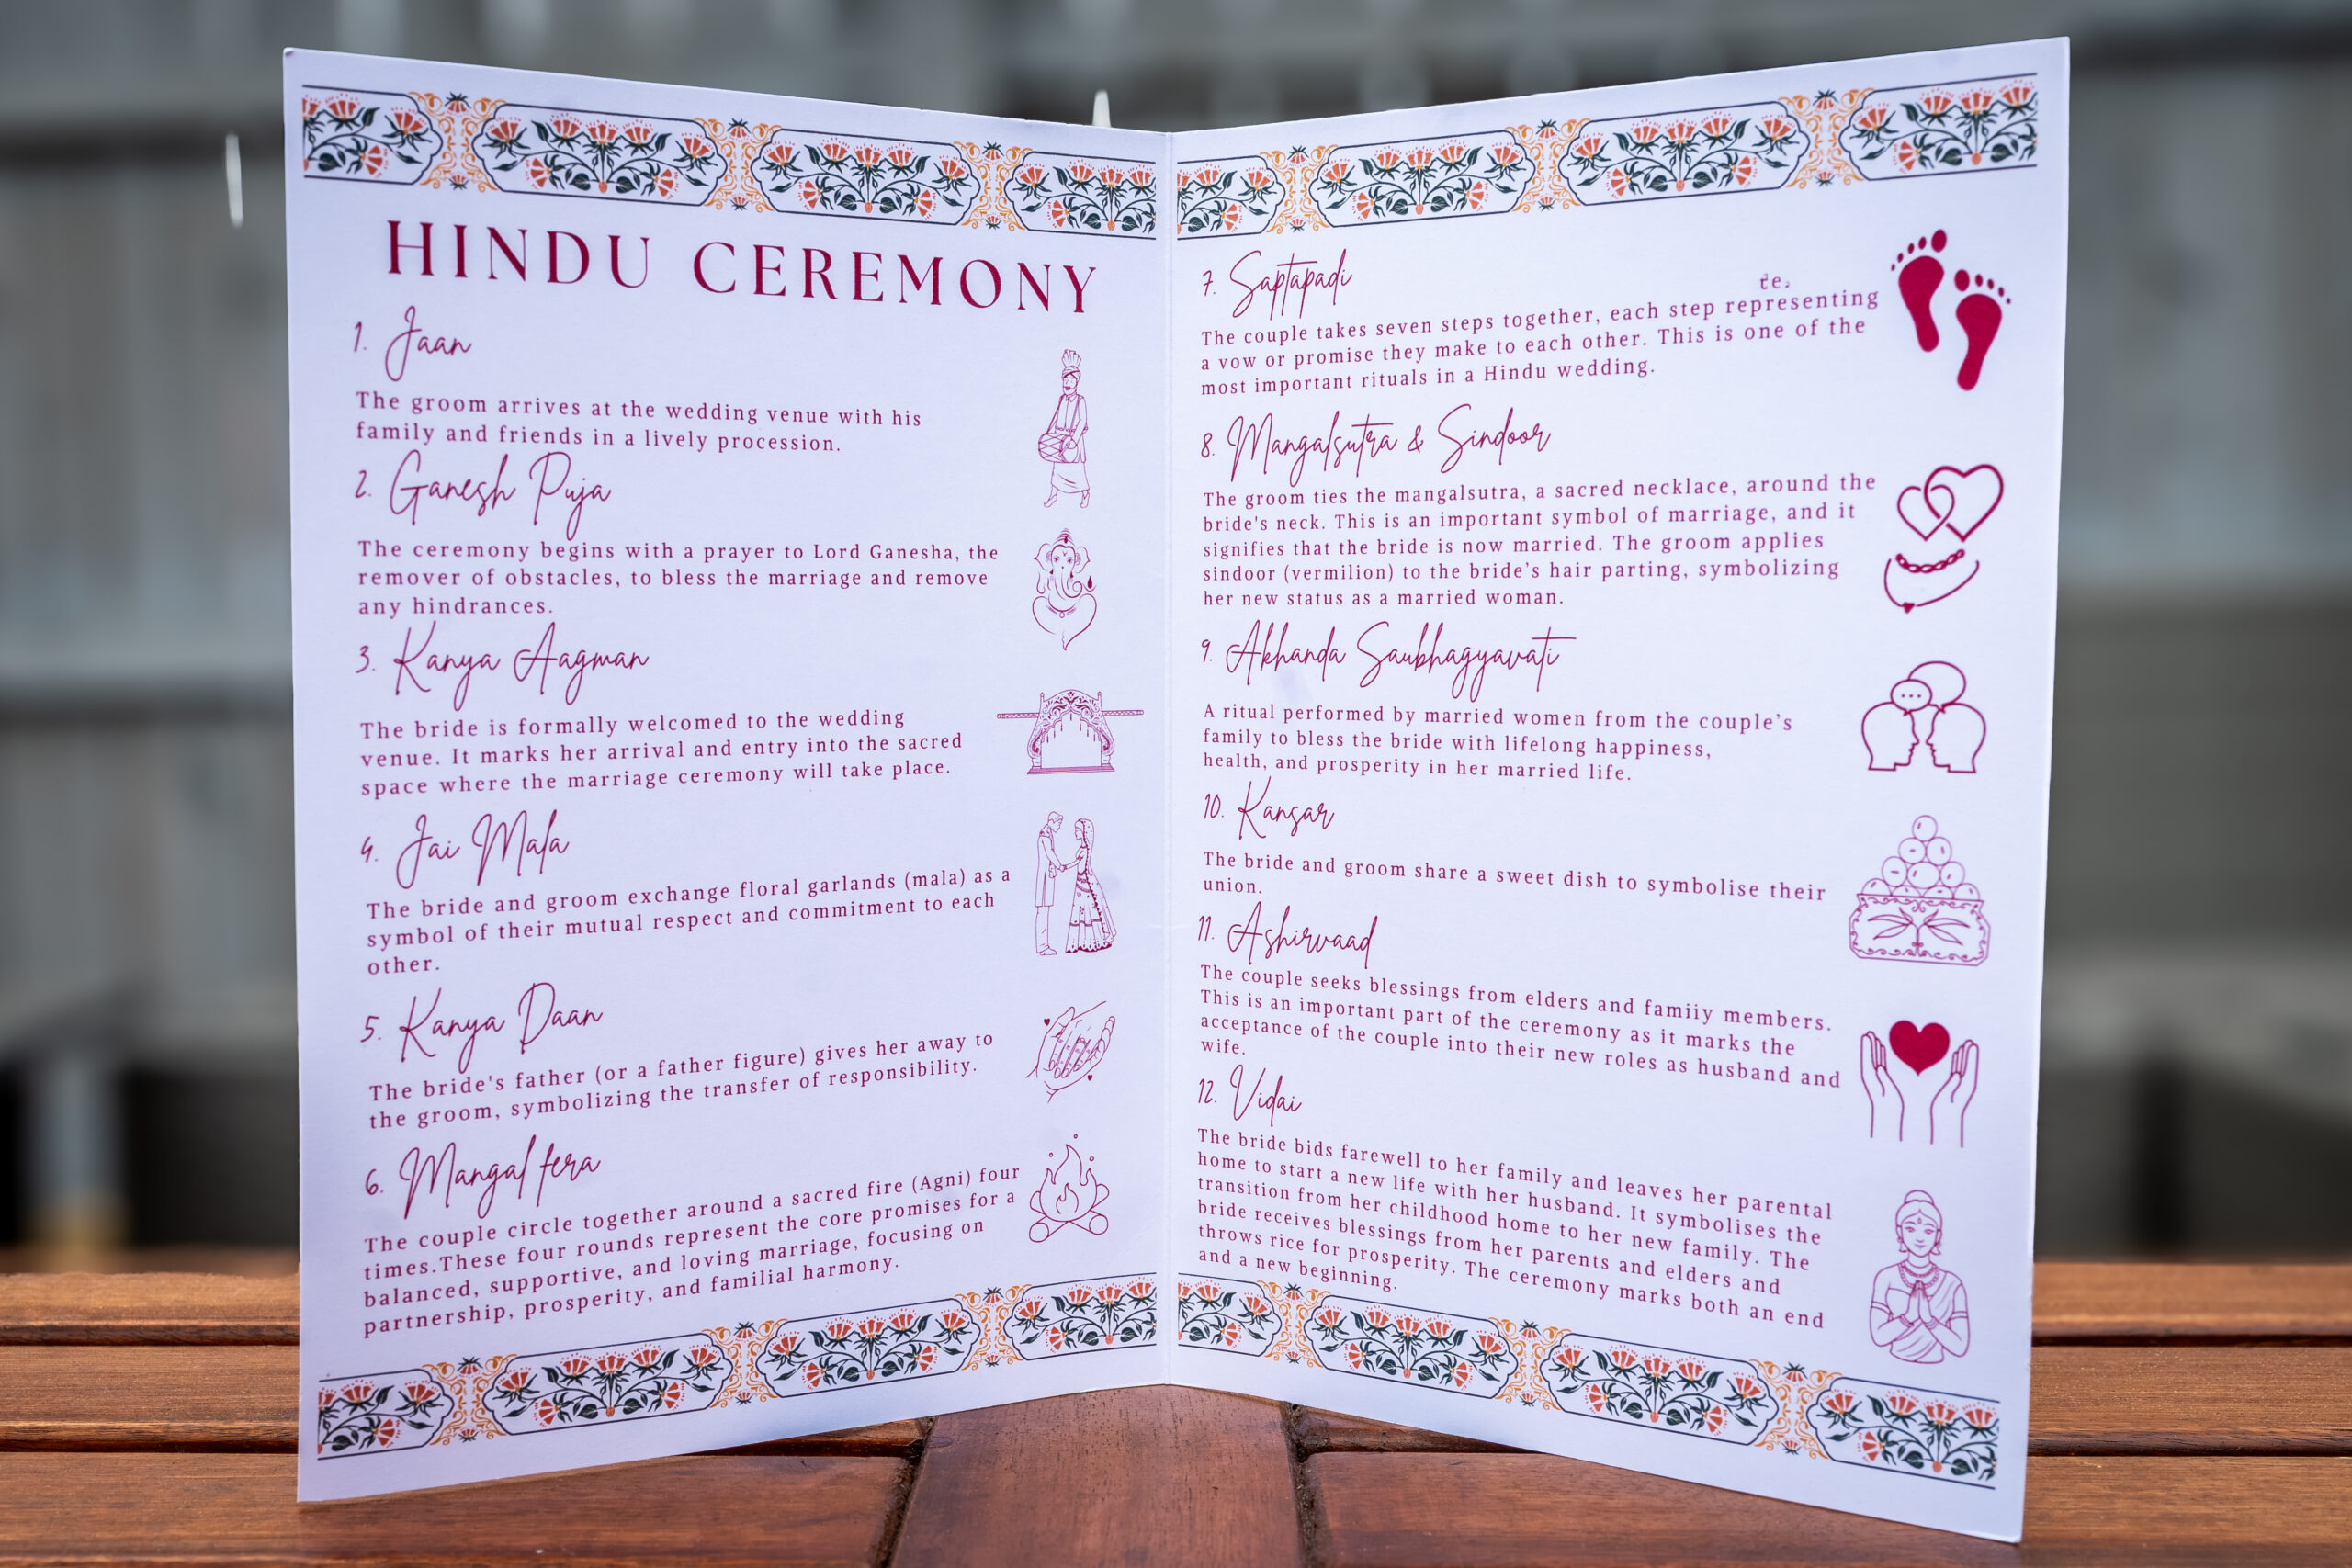 HINDU CEREMONY
1. Jaan
The groom arrives at the wedding venue with his
family and friends in a lively procession.
2. Ganesh Puja
The ceremony begins with a prayer to Lord Ganesha, the
remover of obstacles, to bless the marriage and remove
any hindrances.
3. Kanya Aagman
The bride is formally welcomed to the wedding
venue. It marks her arrival and entry into the sacred
space where the marriage ceremony will take place.
4. Jai Mala
The bride and groom exchange floral garlands (mala) as a
symbol of their mutual respect and commitment to each
other.
5. Kanya Daan
The bride's father (or a father figure) gives her away to
the groom, symbolizing the transfer of responsibility.
6. Mangal fera
The couple circle together around a sacred fire (Agni) four
times.These four rounds represent the core promises for a
balanced, supportive, and loving marriage, focusing on
partnership, prosperity, and familial harmony.
7. Saptapadi
te.
The couple takes seven steps together, each step representing
a vow or promise they make to each other. This is one of the
most important rituals in a Hindu wedding.
8. Mangalsutra & Sindoor
The groom ties the mangalsutra, a sacred necklace, around the
bride's neck. This is an important symbol of marriage, and it
signifies that the bride is now married. The groom applies
sindoor (vermilion) to the bride's hair parting, symbolizing
her new status as a married woman.
9. Akhanda Saubhagyavati
A ritual performed by married women from the couple's
family to bless the bride with lifelong happiness,
health, and prosperity in her married life.
10. Kansar
The bride and groom share a sweet dish to symbolise their
union.
11. Ashirvaad
The couple seeks blessings from elders and famiiy members.
This is an important part of the ceremony as it marks the
acceptance of the couple into their new roles as husband and
wife.
12. Vidai
The bride bids farewell to her family and leaves her parental
home to start a new life with her husband. It symbolises the
transition from her childhood home to her new family. The
bride receives blessings from her parents and elders and
throws rice for prosperity. The ceremony marks both an end
and a new beginning.